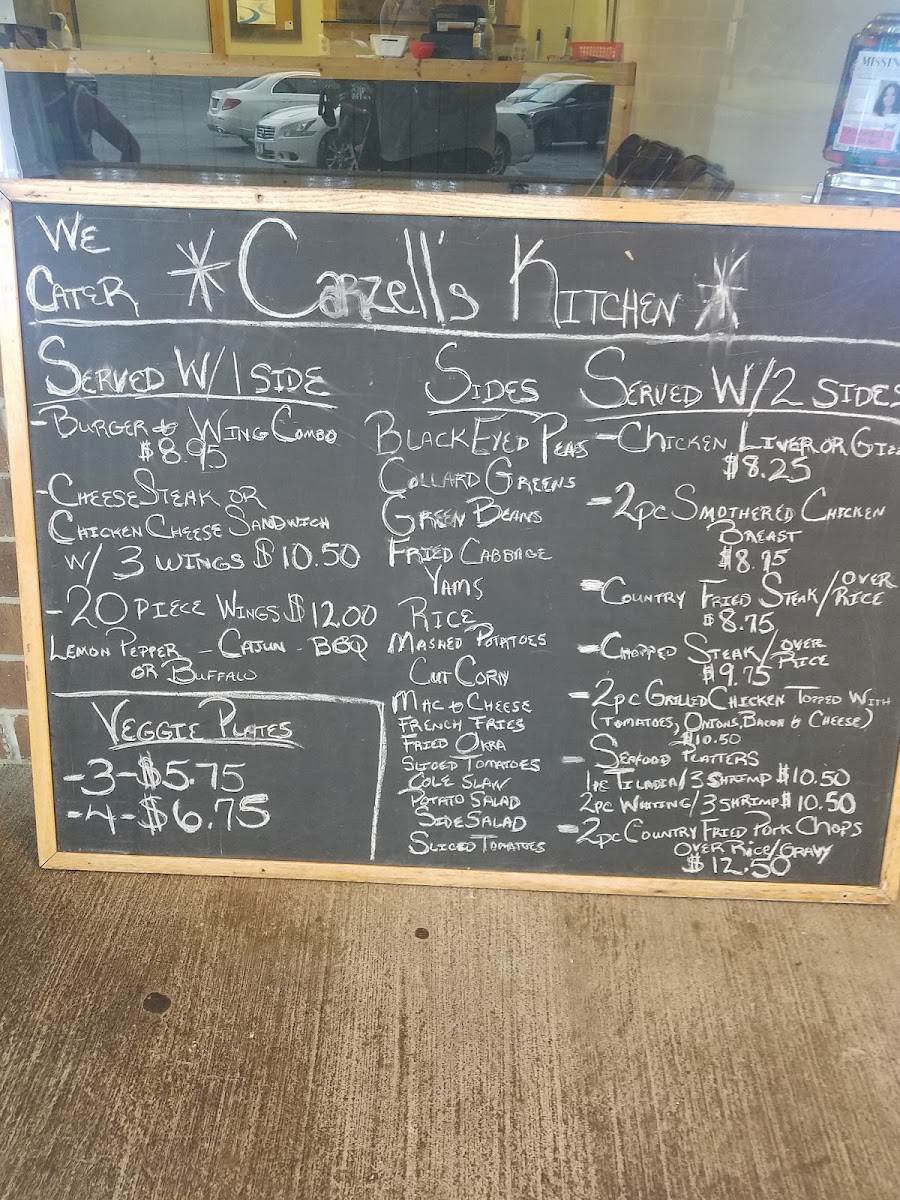 We
Cater
*Carzell's Kitchen*
Served W/1 Side
-Burger & Wing Combo
$8.95
-Cheese Steak or
Chicken Cheese Sandwich
w/ 3 wings $10.50
-20 piece Wings $12.00
Lemon Pepper - Cajun - BBQ
or Buffalo
Veggie Plates
-3-$5.75
-4-$6.75
Sides
Black Eyed Peas
Collard Greens
Green Beans
Fried Cabbage
Yams
Rice
Mashed Potatoes
Cut Corn
Mac & Cheese
French Fries
Fried Okra
Sliced Tomatoes
Cole Slaw
Potato Salad
Side Salad
Sliced Tomatoes
Served W/2 Sides
-Chicken Liver or Giz
$8.25
-2pc Smothered Chicken
Breast
-Country Fried Steak/Over
Rice
$8.75
-Chopped Steak/Over
Rice
$9.75
-2pc Grilled Chicken Topped With
(Tomatoes, Onions, Bacon & Cheese)
$10.50
- Seafood Platters
1pc Tilapia/3 Shrimp $10.50
2pc Whiting/3 Shrimp $10.50
-2pc Country Fried Pork Chops
Over Rice/Gravy
$12.50
MISSIN